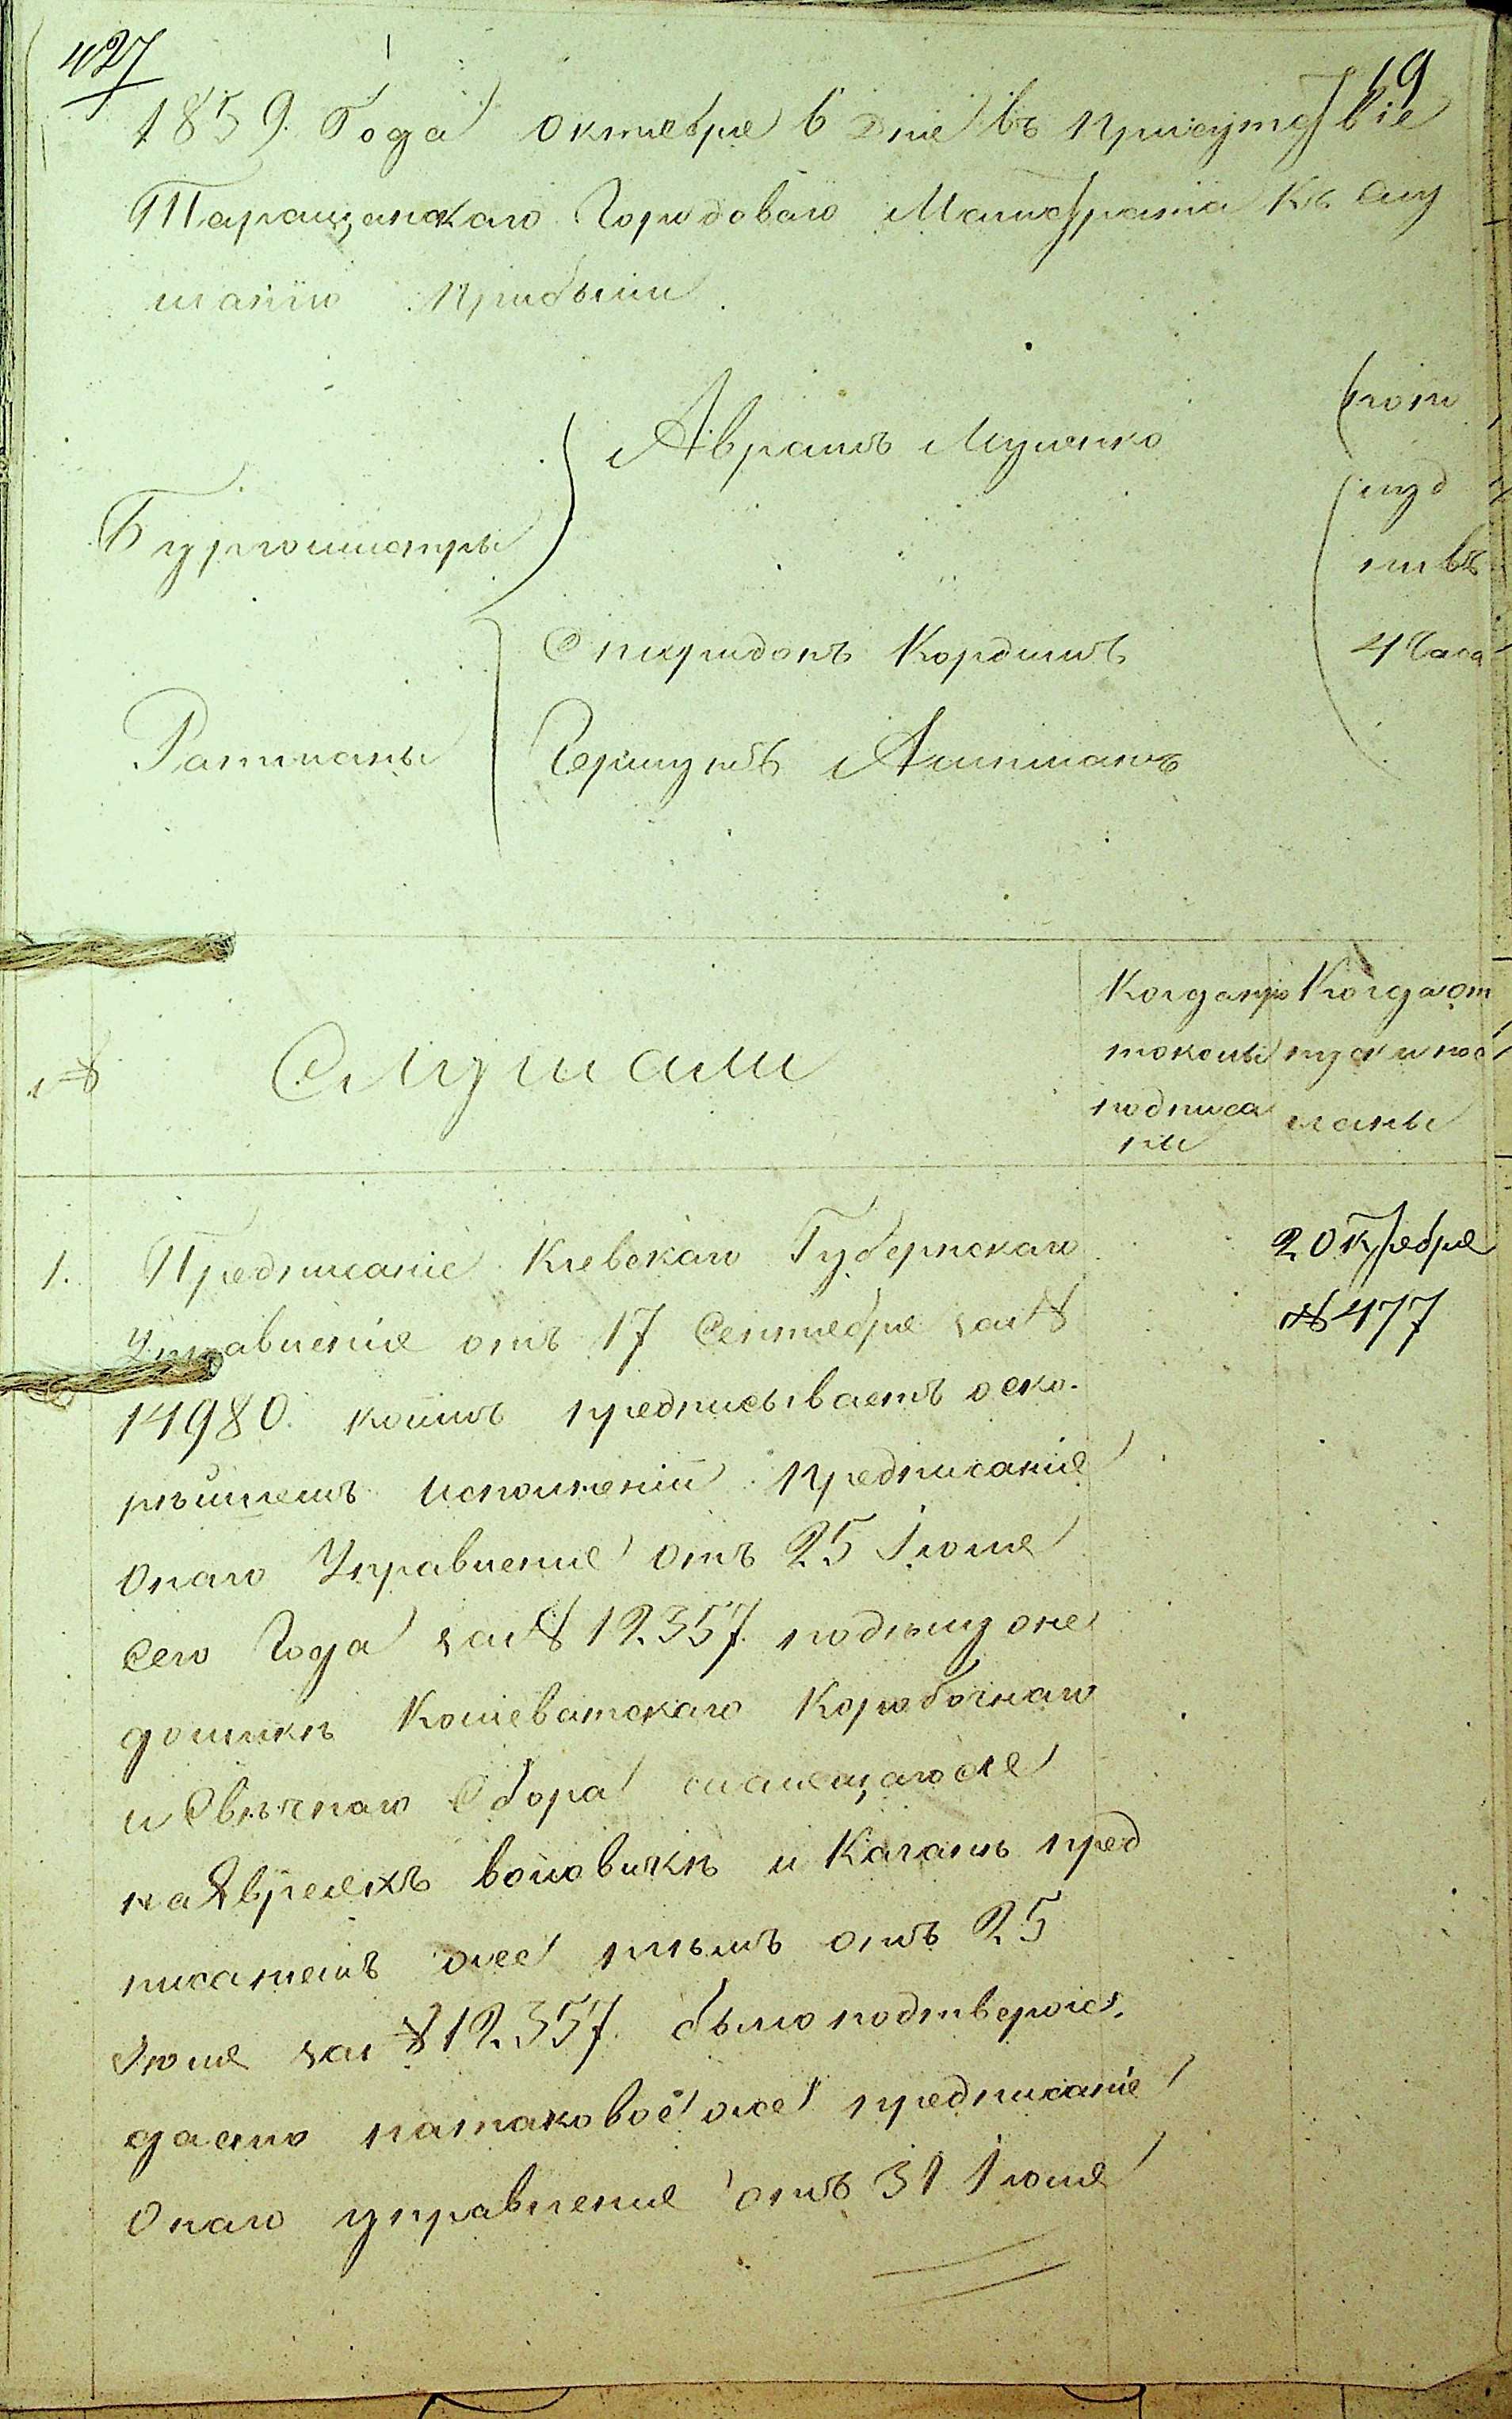 427
19
1839. Года Октября 6 дня въ присутствіе
Таращанскаго Городоваго Магистрата Къ слу
шанію прибыли
Бургомистры
Аврамъ
по по
луд
ни въ
4 часа
Ратманы
Спиридонъ Кордишъ
Гершунъ
№
Слушали
Когда про
токолы
подписа
ны
Когда от
пуски пос
ланы
1. Предписаніе Кіевскаго Губернскаго
Управленія отъ 17 Сентября за №
14980. коимъ предписываетъ о ско-
рѣйшемъ исполненіи предписанія
онаго Управленія отъ 25 Іюля
сего Года за № 12357. по дѣлу о не
доимкѣ Кошеватскаго Коробочнаго
и Свѣчнаго Сбора
на Евреяхъ и Каганъ пред
писаніемъ отъ 25
Іюля за № 12357. было подтвержде-
но на таковоеже предписаніе
Онаго управленія отъ 31 Іюля
2 Октября
№ 477